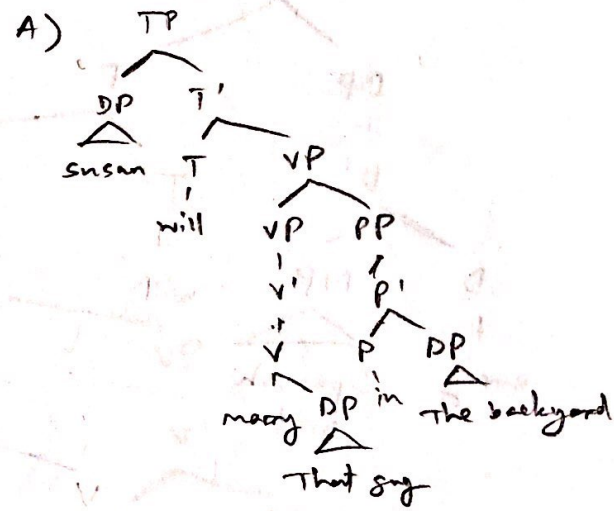 A)
TP
DP T'
Susan T VP
will VP PP
V' P'
V P DP
marry DP in The backyard
That guy